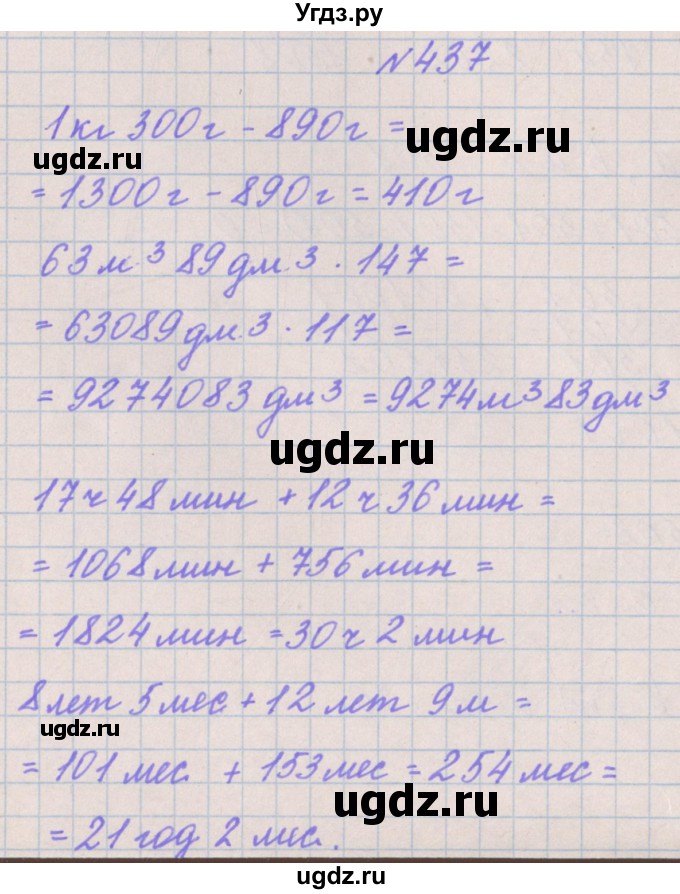 Угдз.ру
№437
1кг 300г - 890г =
ugdz.ru
ugdz.ru
= 1300г - 890г = 410г
63м³ 89дм³ · 147 =
= 63089дм³ · 117 =
= 9274083дм³ = 9274м³83дм³
ugdz.ru
17ч 48мин + 12ч 36мин =
= 1068мин + 756мин =
= 1824мин = 30ч 2мин
8лет 5мес + 12лет 9м =
ugdz.ru
= 101мес. + 153мес = 254мес =
ugdz.ru
= 21год 2мес.
ugdz.ru